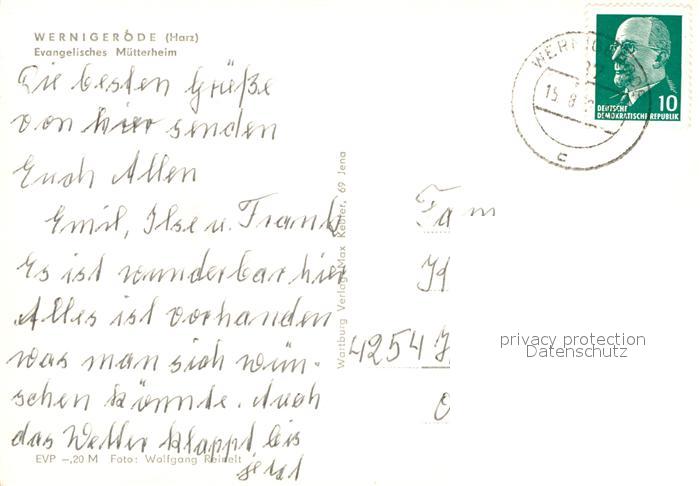 WERNIGERODE (Harz)
Evangelisches Mütterheim
Die besten Grüße
von hier senden
Euch Allen
Emil, Ilse u. Frank
Es ist wunderbar hier
Alles ist vorhanden
was man sich wün-
schen könnte. Auch
das Wetter klappt bis
jetzt
EVP –,20 M Foto: Wolfgang Reinelt
Wartburg Verlag Max Keßler, 69 Jena
Fam
4254
WERNIGERODE
15. 8.
c
DEUTSCHE
DEMOKRATISCHE REPUBLIK
10
privacy protection
Datenschutz